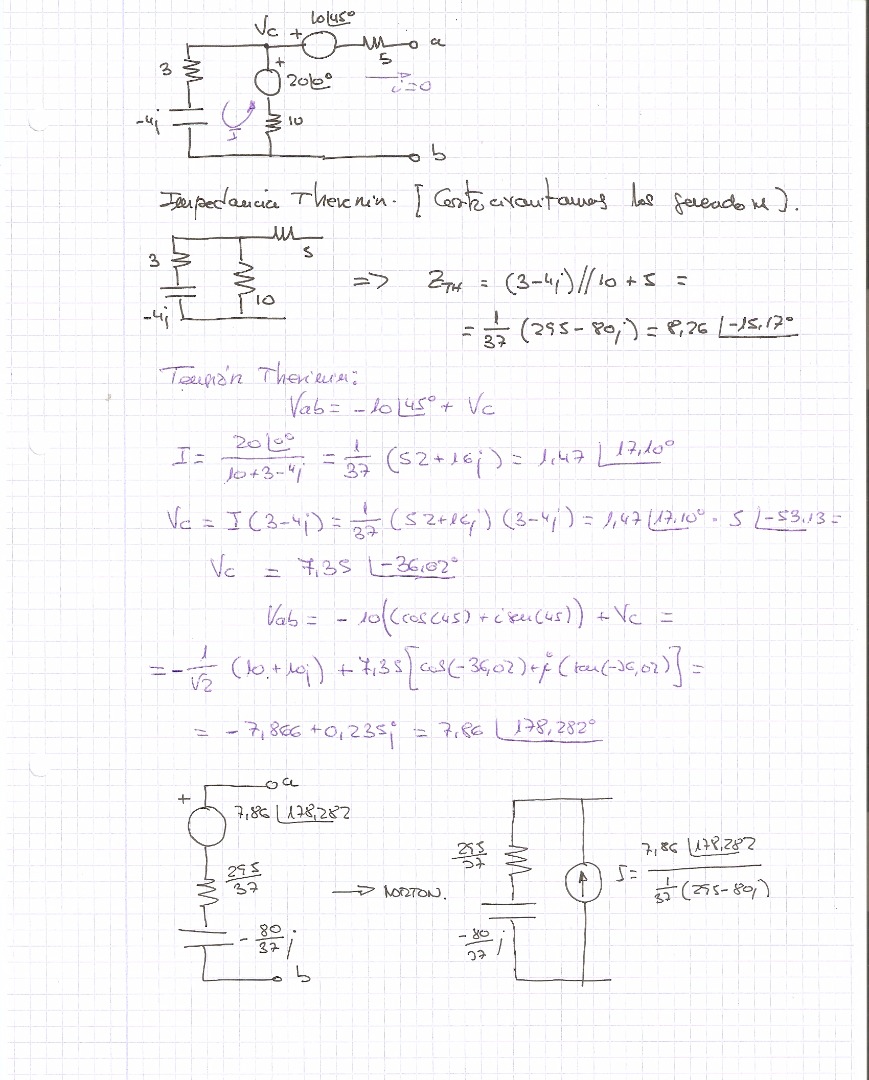 10∠45°
Vc + a
3 + 5
20∠0° i=0
-4j I 10
b
Impedancia Thevenin. [Cortocircuitamos los generadores].
3 5
10
-4j
=> ZTH = (3-4j)//10 + 5 =
= 1/37 (295-80j) = 8,26 ∠-15,17°
Tensión Thevenin:
Vab = -10∠45° + Vc
I = 20∠0° / 10+3-4j = 1/37 (52+16j) = 1,47 ∠17,10°
Vc = I(3-4j) = 1/37 (52+16j)(3-4j) = 1,47∠17,10° · 5∠-53,13 =
Vc = 7,35 ∠-36,02°
Vab = -10(cos(45) + i sen(45)) + Vc =
= -1/√2 (10+10j) + 7,35[cos(-36,02)+j(sen(-36,02)] =
= -7,866 + 0,235j = 7,86 ∠178,282°
a
+
7,86 ∠178,282
295/37
-80/37 j
b
→ NORTON.
295/37
-80/37 j
J = 7,86 ∠178,282 / 1/37 (295-80j)